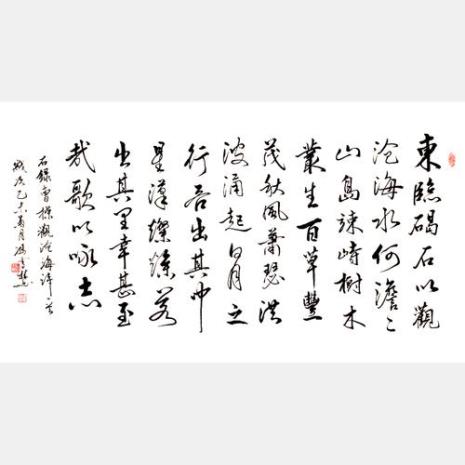 東臨碣石以觀
沧海水何澹〻
山島竦峙樹木
叢生百草豐
茂秋風蕭瑟洪
波涌起日月之
行若出其中
星漢燦爛若
出其里幸甚至
哉歌以咏志
右錄曹操觀滄海詩一首
歲次己 月